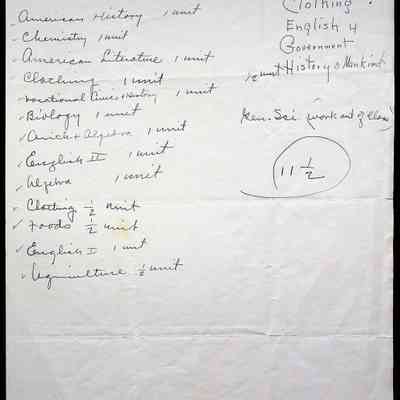 American History 1 unit
Chemistry 1 unit
American Literature 1 unit
Clothing 1 unit
Vocational Civics + History 1 unit
Biology 1 unit
Arith + Algebra 1 unit
English II 1 unit
Algebra 1 unit
Clothing 1/2 unit
Foods 1/2 unit
English I 1 unit
Agriculture 1/2 unit
Clothing
English 4
Government
1/2 unit History of Mankind
Gen. Sci (work out of class)
11 1/2